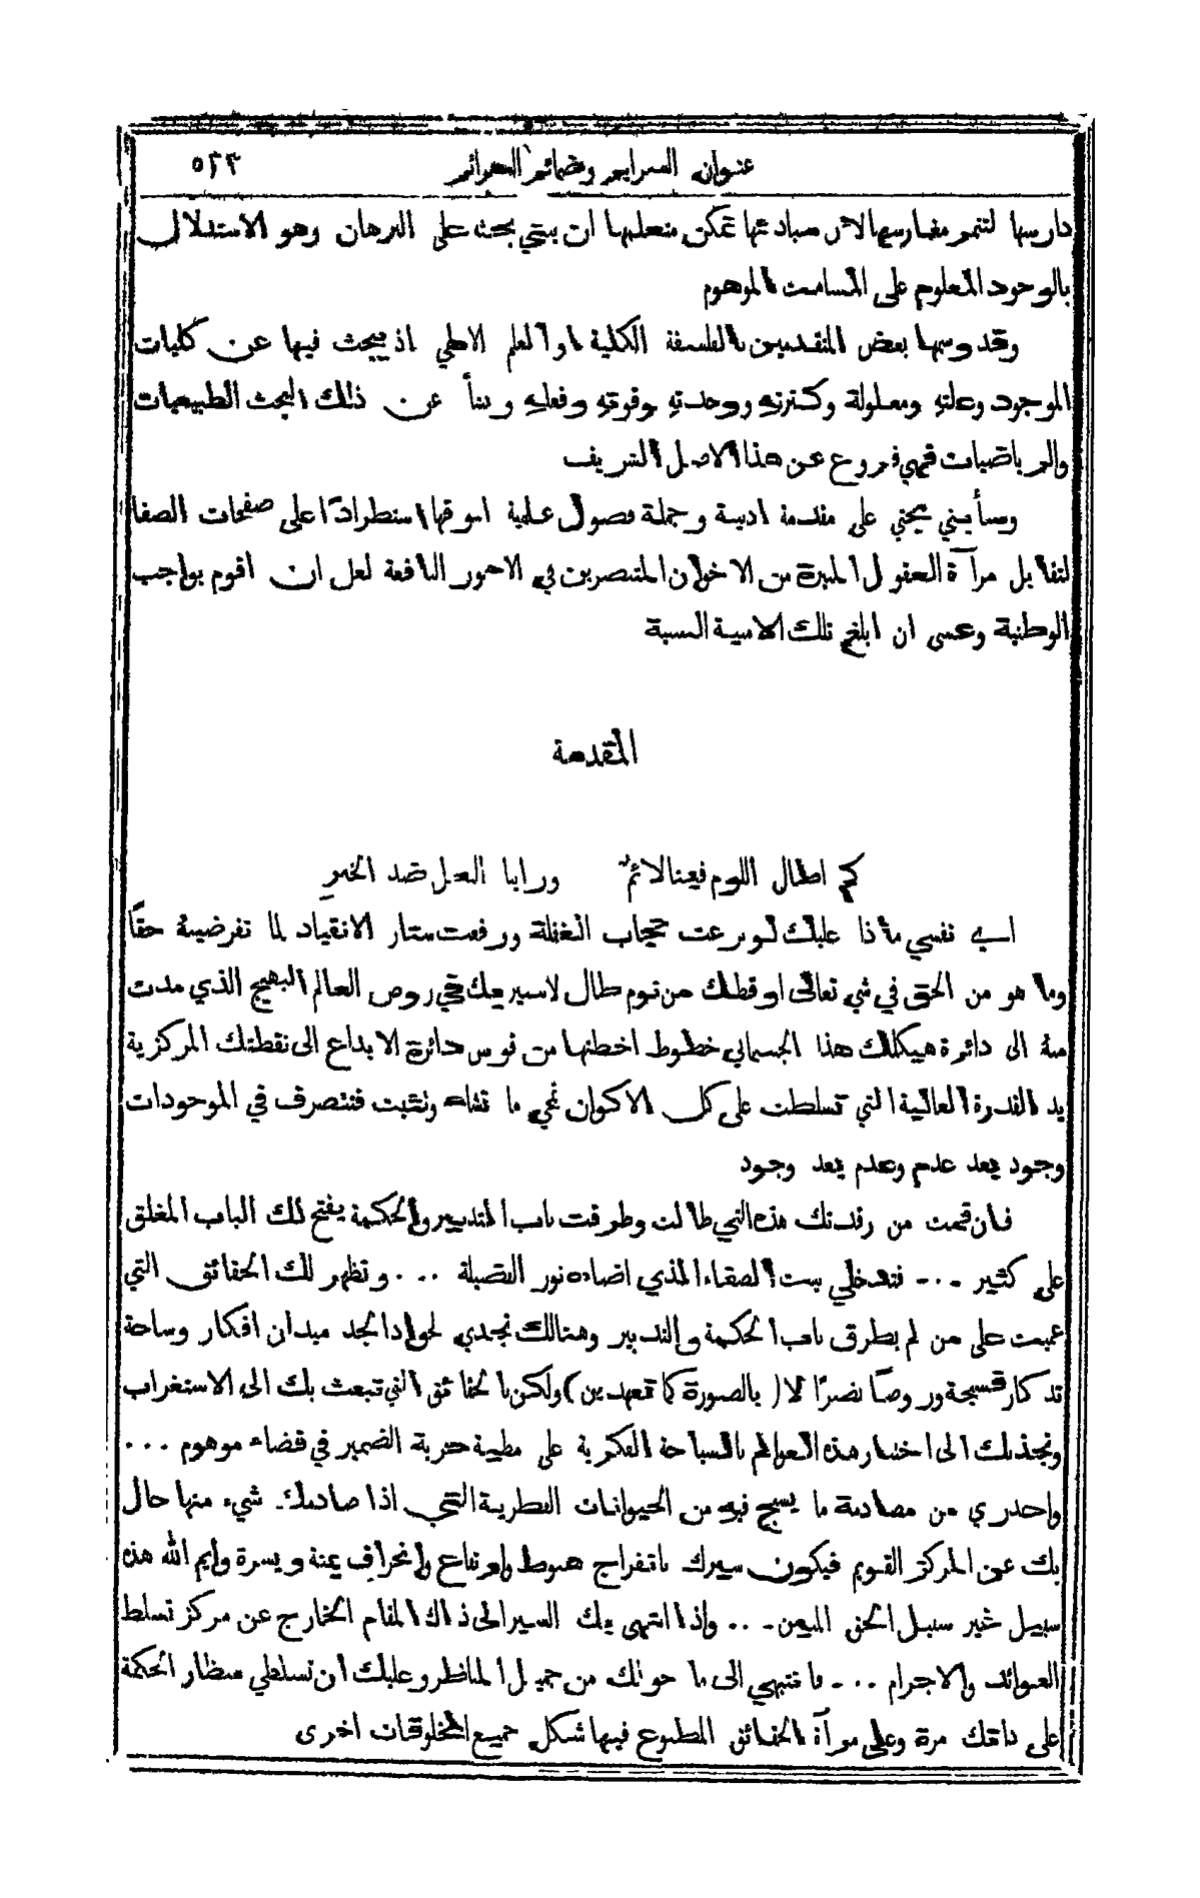 عنوان السراير وضمائر الحرائر ٥٢٣
دارسها لتنمو مغارسها لان مبادئها تمكن متعلمها ان يبتني بحثه على البرهان وهو الاستدلال
بالوجود المعلوم على المسامت الموهوم
وقد وسمها بعض المتقدمين بالفلسفة الكلية او العلم الالهي اذ يبحث فيها عن كليات
الموجود وعلته ومعلولة وكثرته ووحدته وقوته وفعله وينشأ عن ذلك البحث الطبيعيات
والرياضيات فهي فروع عن هذا الاصل الشريف
وسأبني بحثي على مقدمة ادبية وجملة فصول علمية اسوقها استطرادًا على صفحات الصفا
لتقابل مرآة العقول المنيرة من الاخوان المتبصرين في الامور النافعة لعل ان اقوم بواجب
الوطنية وعسى ان ابلغ تلك الامنية السنية
المقدمة
كم اطال اللوم فينا لائم ورايا العدل ضد الخير
اي نفسي ماذا عليك لو نزعت حجاب الغفلة ورفعت ستار الانقياد لما تفرضينه حقًا
وما هو من الحق في شي تعالى اوقظك من نوم طال لاسير بك في روض العالم البهيج الذي مدت
منه الى دائرة هيكلك هذا الجسماني خطوط اخطتها من قوس دائرة الابداع الى نقطتك المركزية
يد القدرة العالية التي تسلطت على كل الاكوان تمحي ما تشاء وتثبت فتتصرف في الموجودات
وجود بعد عدم وعدم بعد وجود
فان قمت من رقدتك هذه التي طالت وطرقت باب التدبير والحكمة يفتح لك الباب المغلق
على كثير ... فتدخلي بيت الصفاء الذي اضاءه نور الفضيلة ... وتظهر لك الحقائق التي
عميت على من لم يطرق باب الحكمة والتدبير وهنالك تجدي لجواد الجد ميدان افكار وساحة
تذكار فسيحة وروضًا نضرًا لا (بالصورة كما تعهدين) ولكن بالحقائق التي تبعث بك الى الاستغراب
وتجذبك الى اختبار هذه العوالم بالسباحة الفكرية على مطية حرية الضمير في فضاء موهوم ...
واحدري من مصادمة ما يسبح فيه من الحيوانات الفطرية التي اذا صادمك شيء منها حال
بك عن المركز القويم فيكون سيرك بانفراج هبوط وارتفاع وانحراف يمنة ويسرة وايم الله هذه
سبيل غير سبيل الحق المبين ... واذا انتهى بك السير الى ذاك المقام الخارج عن مركز تسلط
العوائد والاجرام ... فانتبهي الى ما حولك من جميل المناظر وعليك ان تسلطي منظار الحكمة
على ذاتك مرة وعلى مرآة الحقائق المطبوع فيها شكل جميع المخلوقات اخرى